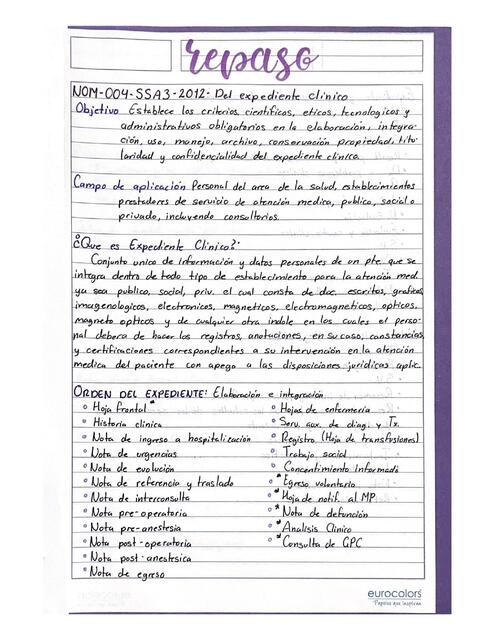 repaso
NOM-004-SSA3-2012- Del expediente clinico
Objetivo Establece los criterios cientificos, eticos, tecnologicos y
administrativos obligatorios en la elaboración, integra-
ción, uso, manejo, archivo, conservación propiedad, titu-
laridad y confidencialidad del expediente clinico.
Campo de aplicación Personal del area de la salud, establecimientos
prestadores de servicio de atención medica, publico, social o
privado, incluyendo consultorios.
¿Que es Expediente Clinico?:
Conjunto unico de información y datos personales de un pte. que se
integra dentro de todo tipo de establecimiento para la atención med.
ya sea publico, social, priv. el cual consta de doc. escritos, graficos,
imagenologicos, electronicos, magneticos, electromagneticos, opticos,
magneto opticos y de cualquier otra indole en los cuales el perso-
nal debera de hacer los registros, anotaciones, en su caso, constancias,
y certificaciones correspondientes a su intervención en la atención
medica del paciente con apego a las disposiciones juridicas aplic.
ORDEN DEL EXPEDIENTE: Elaboración e integración
° Hoja frontal*
° Historia clinica
° Nota de ingreso a hospitalización
° Nota de urgencias
° Nota de evolución
° Nota de referencia y traslado
° Nota de interconsulta
° Nota pre-operatoria
° Nota pre-anestesia
° Nota post-operatoria
° Nota post-anestesica
° Nota de egreso
° Hojas de enfermeria
° Serv. aux. de diag. y Tx.
° Registro (Hoja de transfusiones)
° Trabajo social
° Concentimiento Informado
°* Egreso voluntario
°* Hoja de notif. al MP.
°* Nota de defunción
°* Analisis Clinico
°* Consulta de GPC
eurocolors
Papeles que inspiran